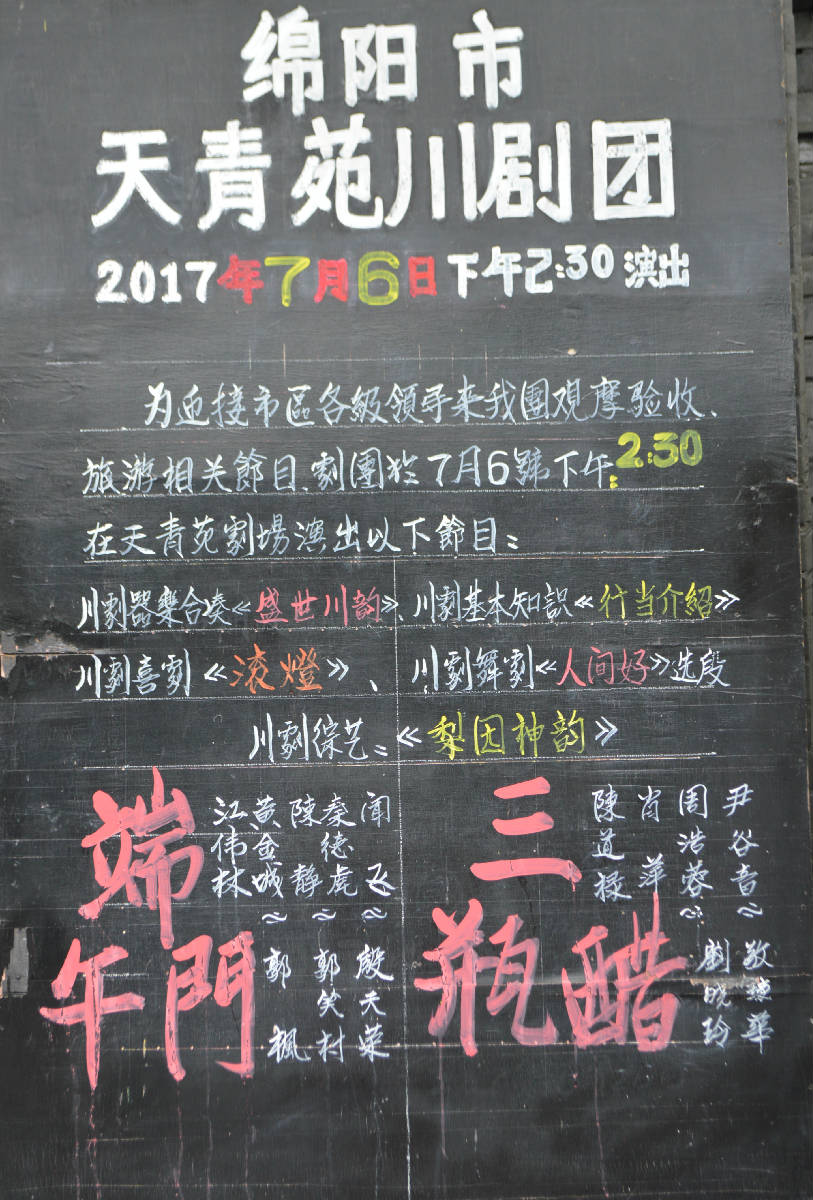 绵阳市
天青苑川剧团
2017年7月6日下午2:30演出
为迎接市區各級領导来我團观摩验收、
旅游相关節目、劇團於7月6號下午:2:30
在天青苑劇場演出以下節目:
川劇器樂合奏《盛世川韵》、川劇基本知識《行当介紹》
川劇喜劇《滚燈》、川劇舞劇《人间好》选段
川劇綜艺:《梨园神韵》
端午門
闻飞~殷天荣
秦德虎~郭笑村
陳静
黄金城~郭楓
江伟林
三瓶醋
尹谷音~敬琼華
周浩蓉~劉晓玲
肖萍
陳道禄